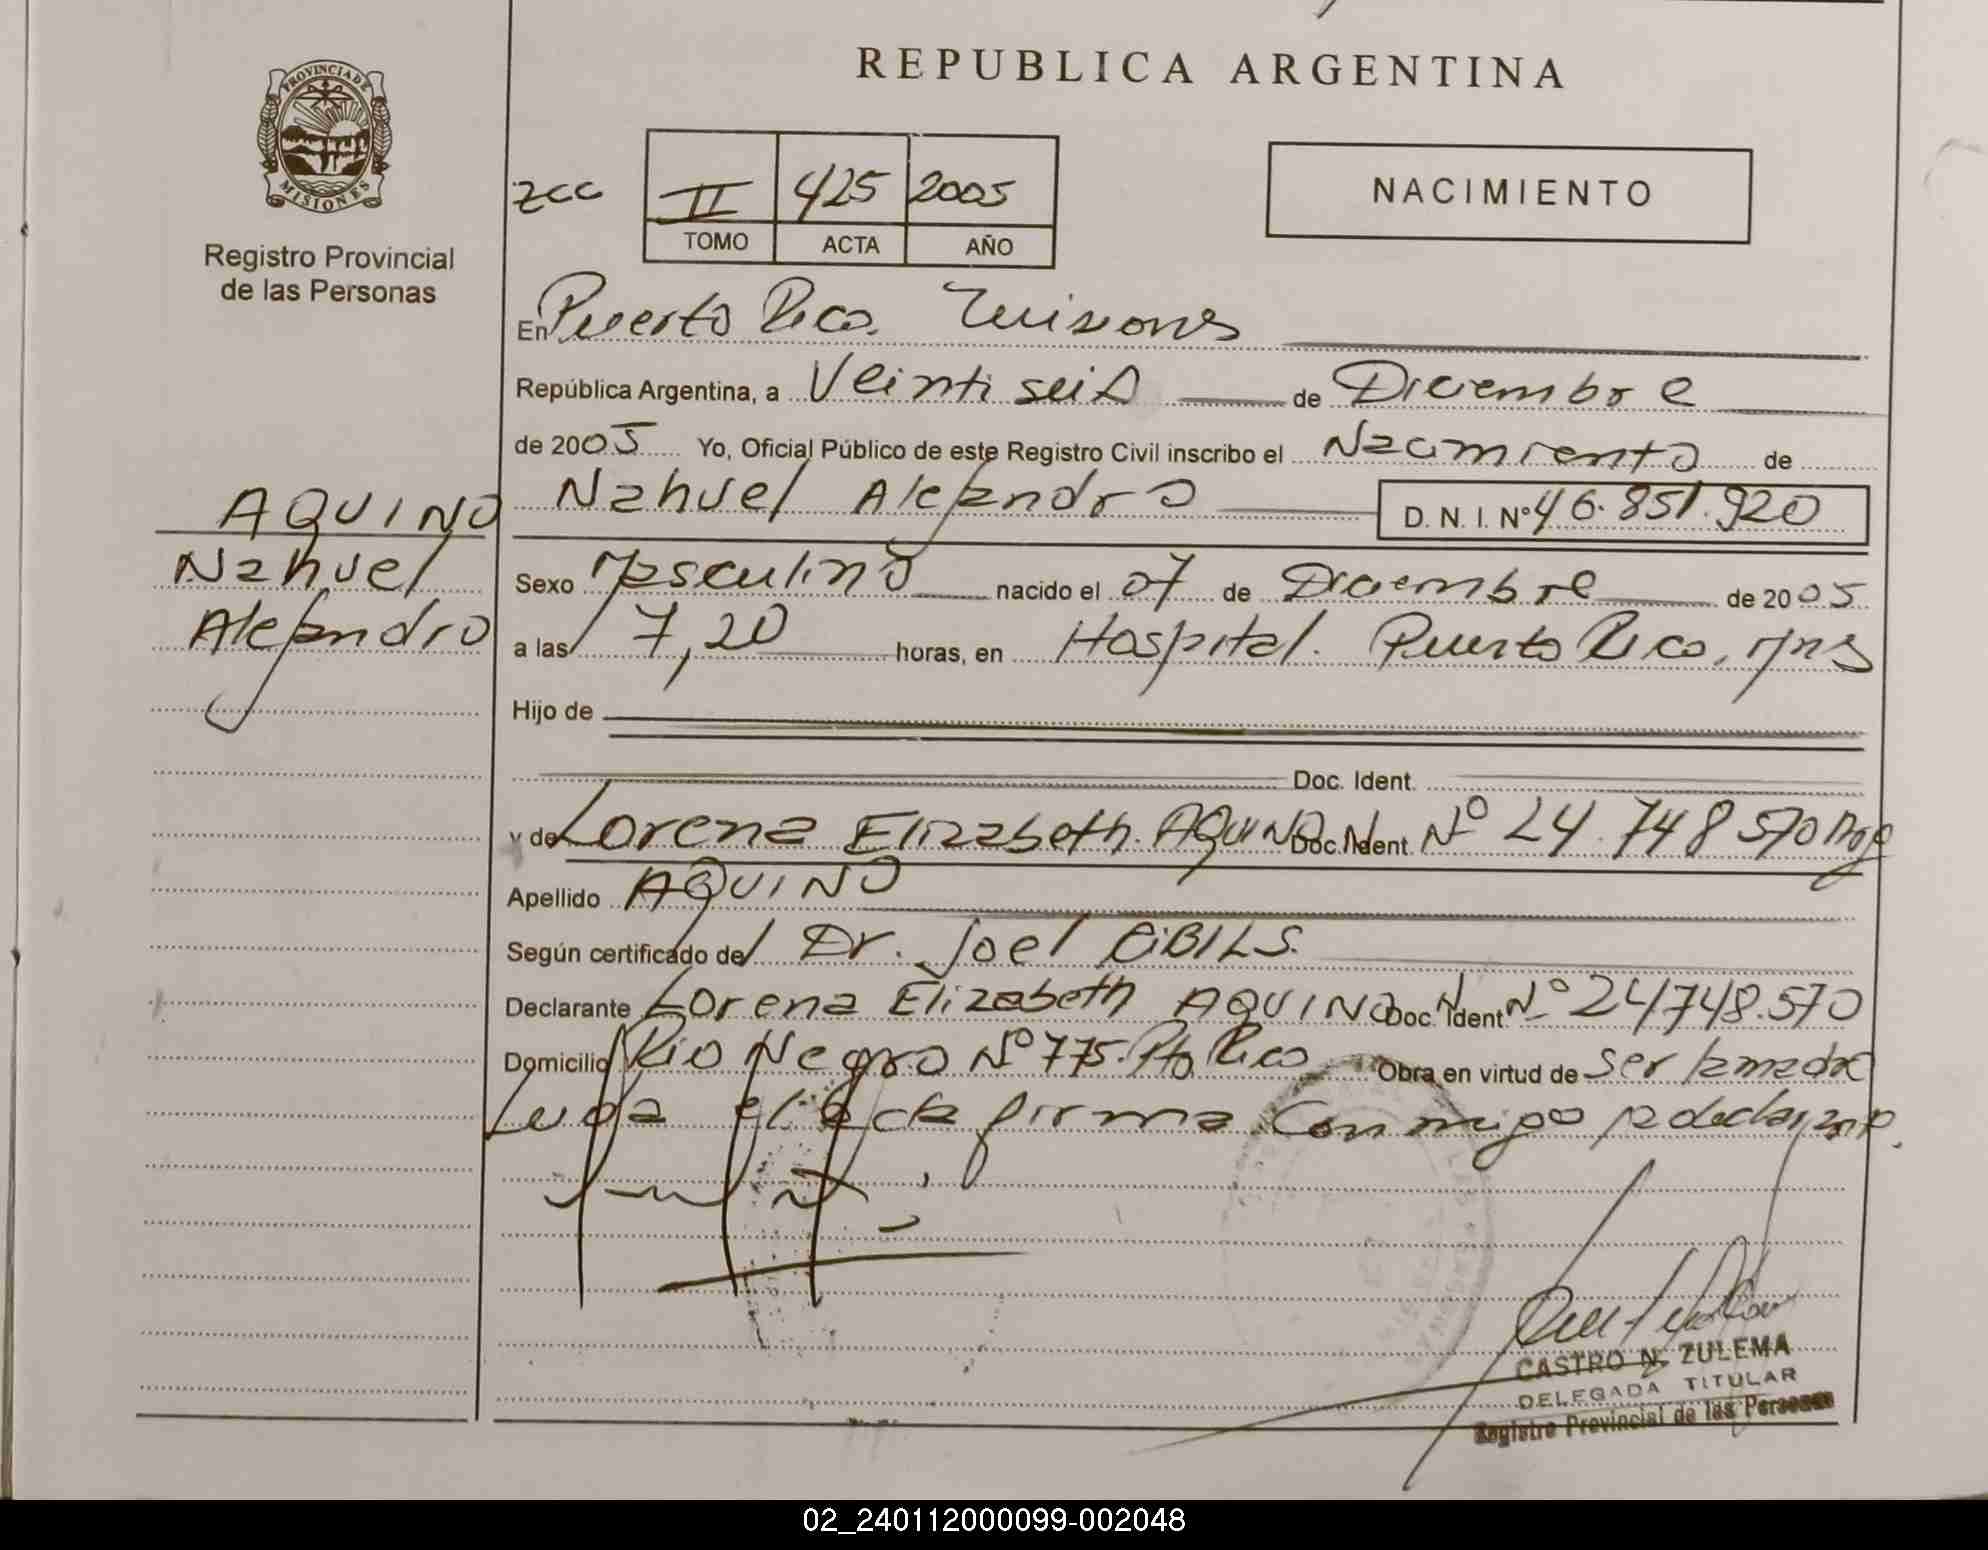 REPUBLICA ARGENTINA
PROVINCIA DE MISIONES
Registro Provincial
de las Personas
II 425 2005
TOMO ACTA AÑO
NACIMIENTO
En Puerto Rico. Misiones
República Argentina, a Veintiseis de Diciembre
de 2005 Yo, Oficial Público de este Registro Civil inscribo el Nacimiento de
Nahuel Alejandro D. N. I. Nº 46.851.920
AQUINO
Nahuel
Alejandro
Sexo Masculino nacido el 07 de Diciembre de 2005
a las 7,20 horas, en Hospital. Puerto Rico, Mns
Hijo de
Doc. Ident.
y de Lorena Elizabeth. AQUINO Doc. Ident. Nº 24.748570
Apellido AQUINO
Según certificado del Dr. Joel CiBILS.
Declarante Lorena Elizabeth AQUINO Doc. Ident Nº 24748.570
Domicilio Rio Negro Nº 775. Pto Rico Obra en virtud de ser la madre
Leida el acta firma conmigo la declarante.
CASTRO N. ZULEMA
DELEGADA TITULAR
Registro Provincial de las Personas
02_240112000099-002048